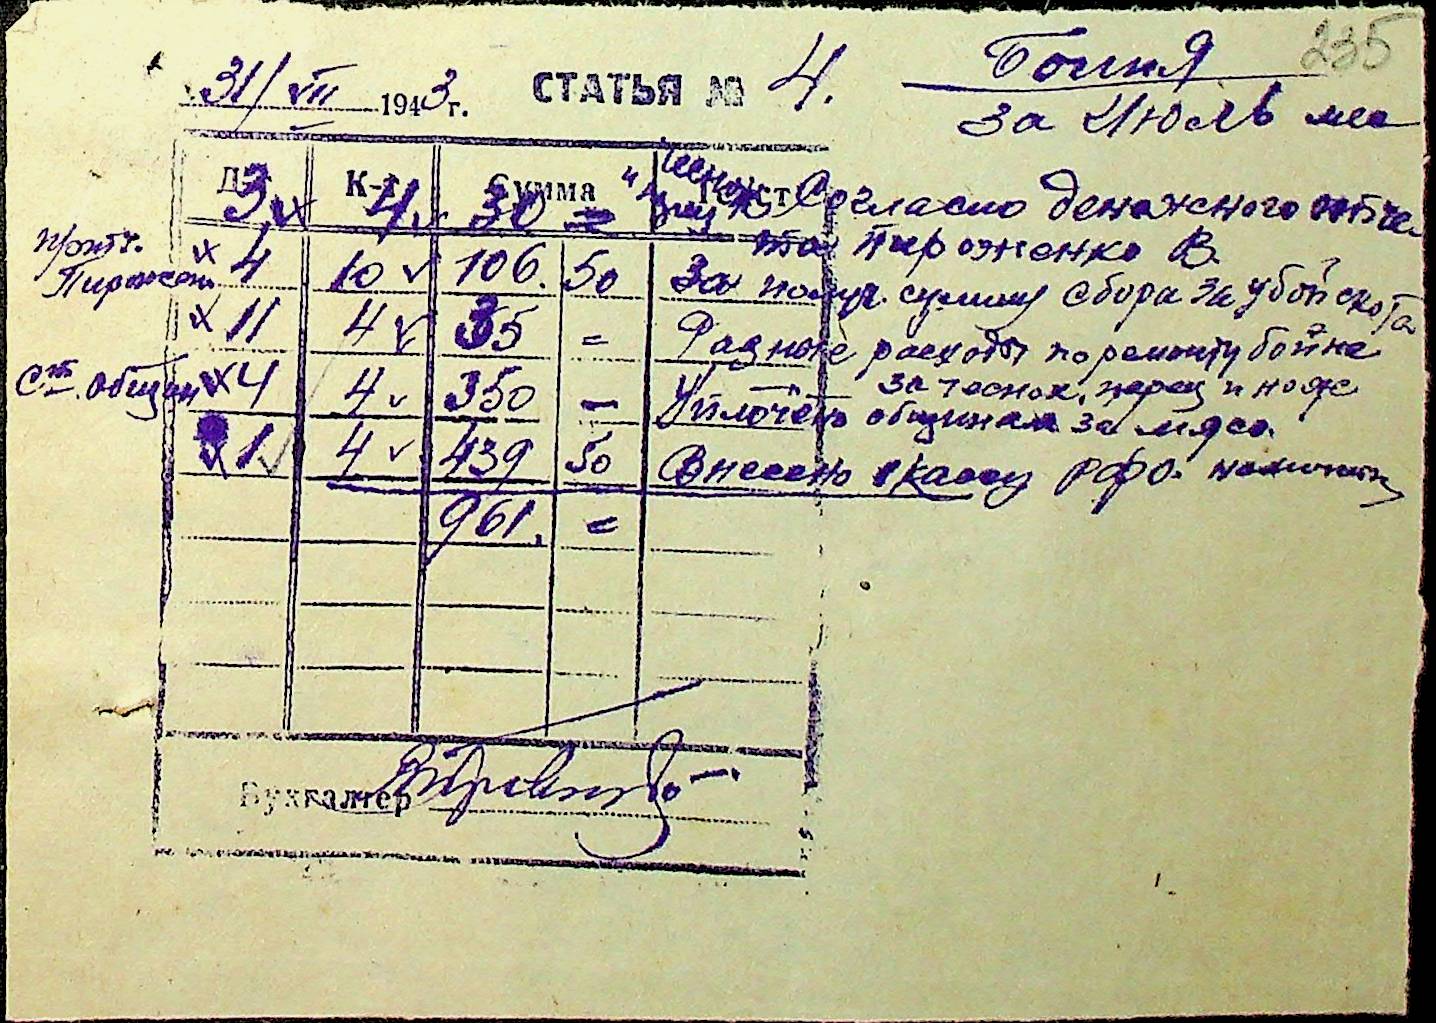 235
31/VII 1943 г. СТАТЬЯ № 4. Бойня
за Июль мес
Д-т К-т Сумма Текст
3 4 30 = Согласно денежного отче-
та Пироженко В.
Пироженк 4 10 106. 50 За получ. сумму сбора за убой скота
11 4 35 = Разные расходы по ремонту бойне
за чеснок, перец и нож
общин 4 4 350 — Уплочено общинам за мясо.
1 4 439 50 Внесено в кассу РФО.
961. =
Бухгалтер